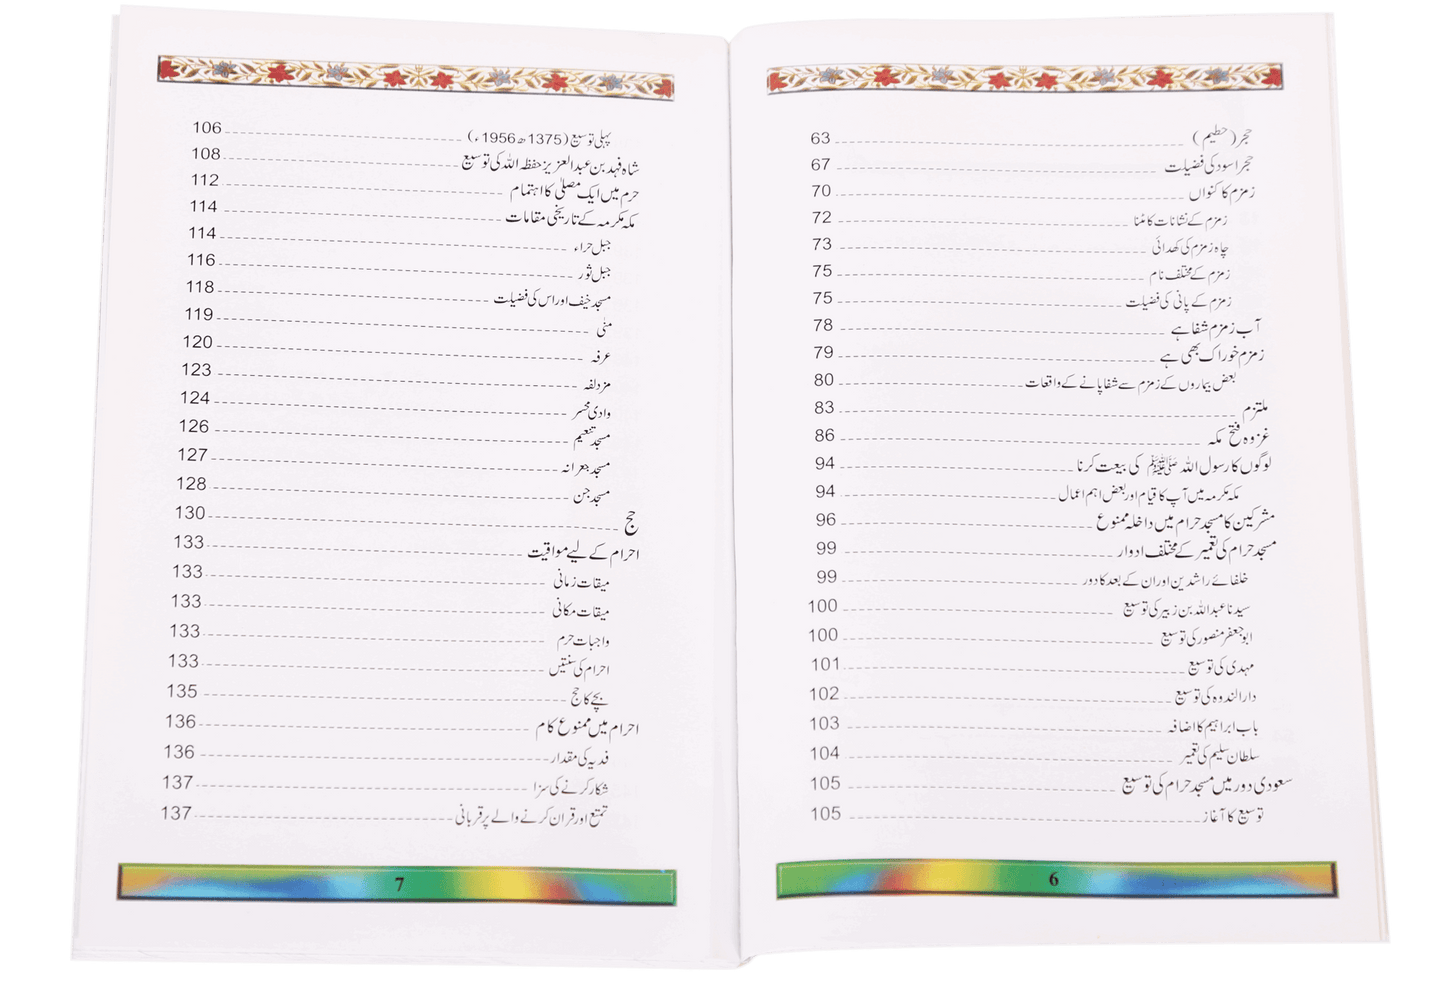 حجر (حطیم) 63
حجر اسود کی فضیلت 67
زمزم کا کنواں 70
زمزم کے نشانات کا مٹنا 72
چاہ زمزم کی کھدائی 73
زمزم کے مختلف نام 75
زمزم کے پانی کی فضیلت 75
آب زمزم شفا ہے 78
زمزم خوراک بھی ہے 79
بعض بیماروں کے زمزم سے شفا پانے کے واقعات 80
ملتزم 83
غزوہ فتح مکہ 86
لوگوں کا رسول اللہ ﷺ کی بیعت کرنا 94
مکہ مکرمہ میں آپ کا قیام اور بعض اہم اعمال 94
مشرکین کا مسجد حرام میں داخلہ ممنوع 96
مسجد حرام کی تعمیر کے مختلف ادوار 99
خلفائے راشدین اور ان کے بعد کا دور 99
سیدنا عبداللہ بن زبیر کی توسیع 100
ابو جعفر منصور کی توسیع 100
مہدی کی توسیع 101
دارالندوہ کی توسیع 102
باب ابراہیم کا اضافہ 103
سلطان سلیم کی تعمیر 104
سعودی دور میں مسجد حرام کی توسیع 105
توسیع کا آغاز 105
6
پہلی توسیع (1375ھ 1956ء) 106
شاہ فہد بن عبدالعزیز حفظہ اللہ کی توسیع 108
حرم میں ایک مصلیٰ کا اہتمام 112
مکہ مکرمہ کے تاریخی مقامات 114
جبل حراء 114
جبل ثور 116
مسجد خیف اور اس کی فضیلت 118
منٰی 119
عرفہ 120
مزدلفہ 123
وادی محسر 124
مسجد تنعیم 126
مسجد جعرانہ 127
مسجد جن 128
حج 130
احرام کے لیے مواقیت 133
میقات زمانی 133
میقات مکانی 133
واجبات حرم 133
احرام کی سنتیں 133
بچے کا حج 135
احرام میں ممنوع کام 136
فدیہ کی مقدار 136
شکار کرنے کی سزا 137
تمتع اور قران کرنے والے پر قربانی 137
7